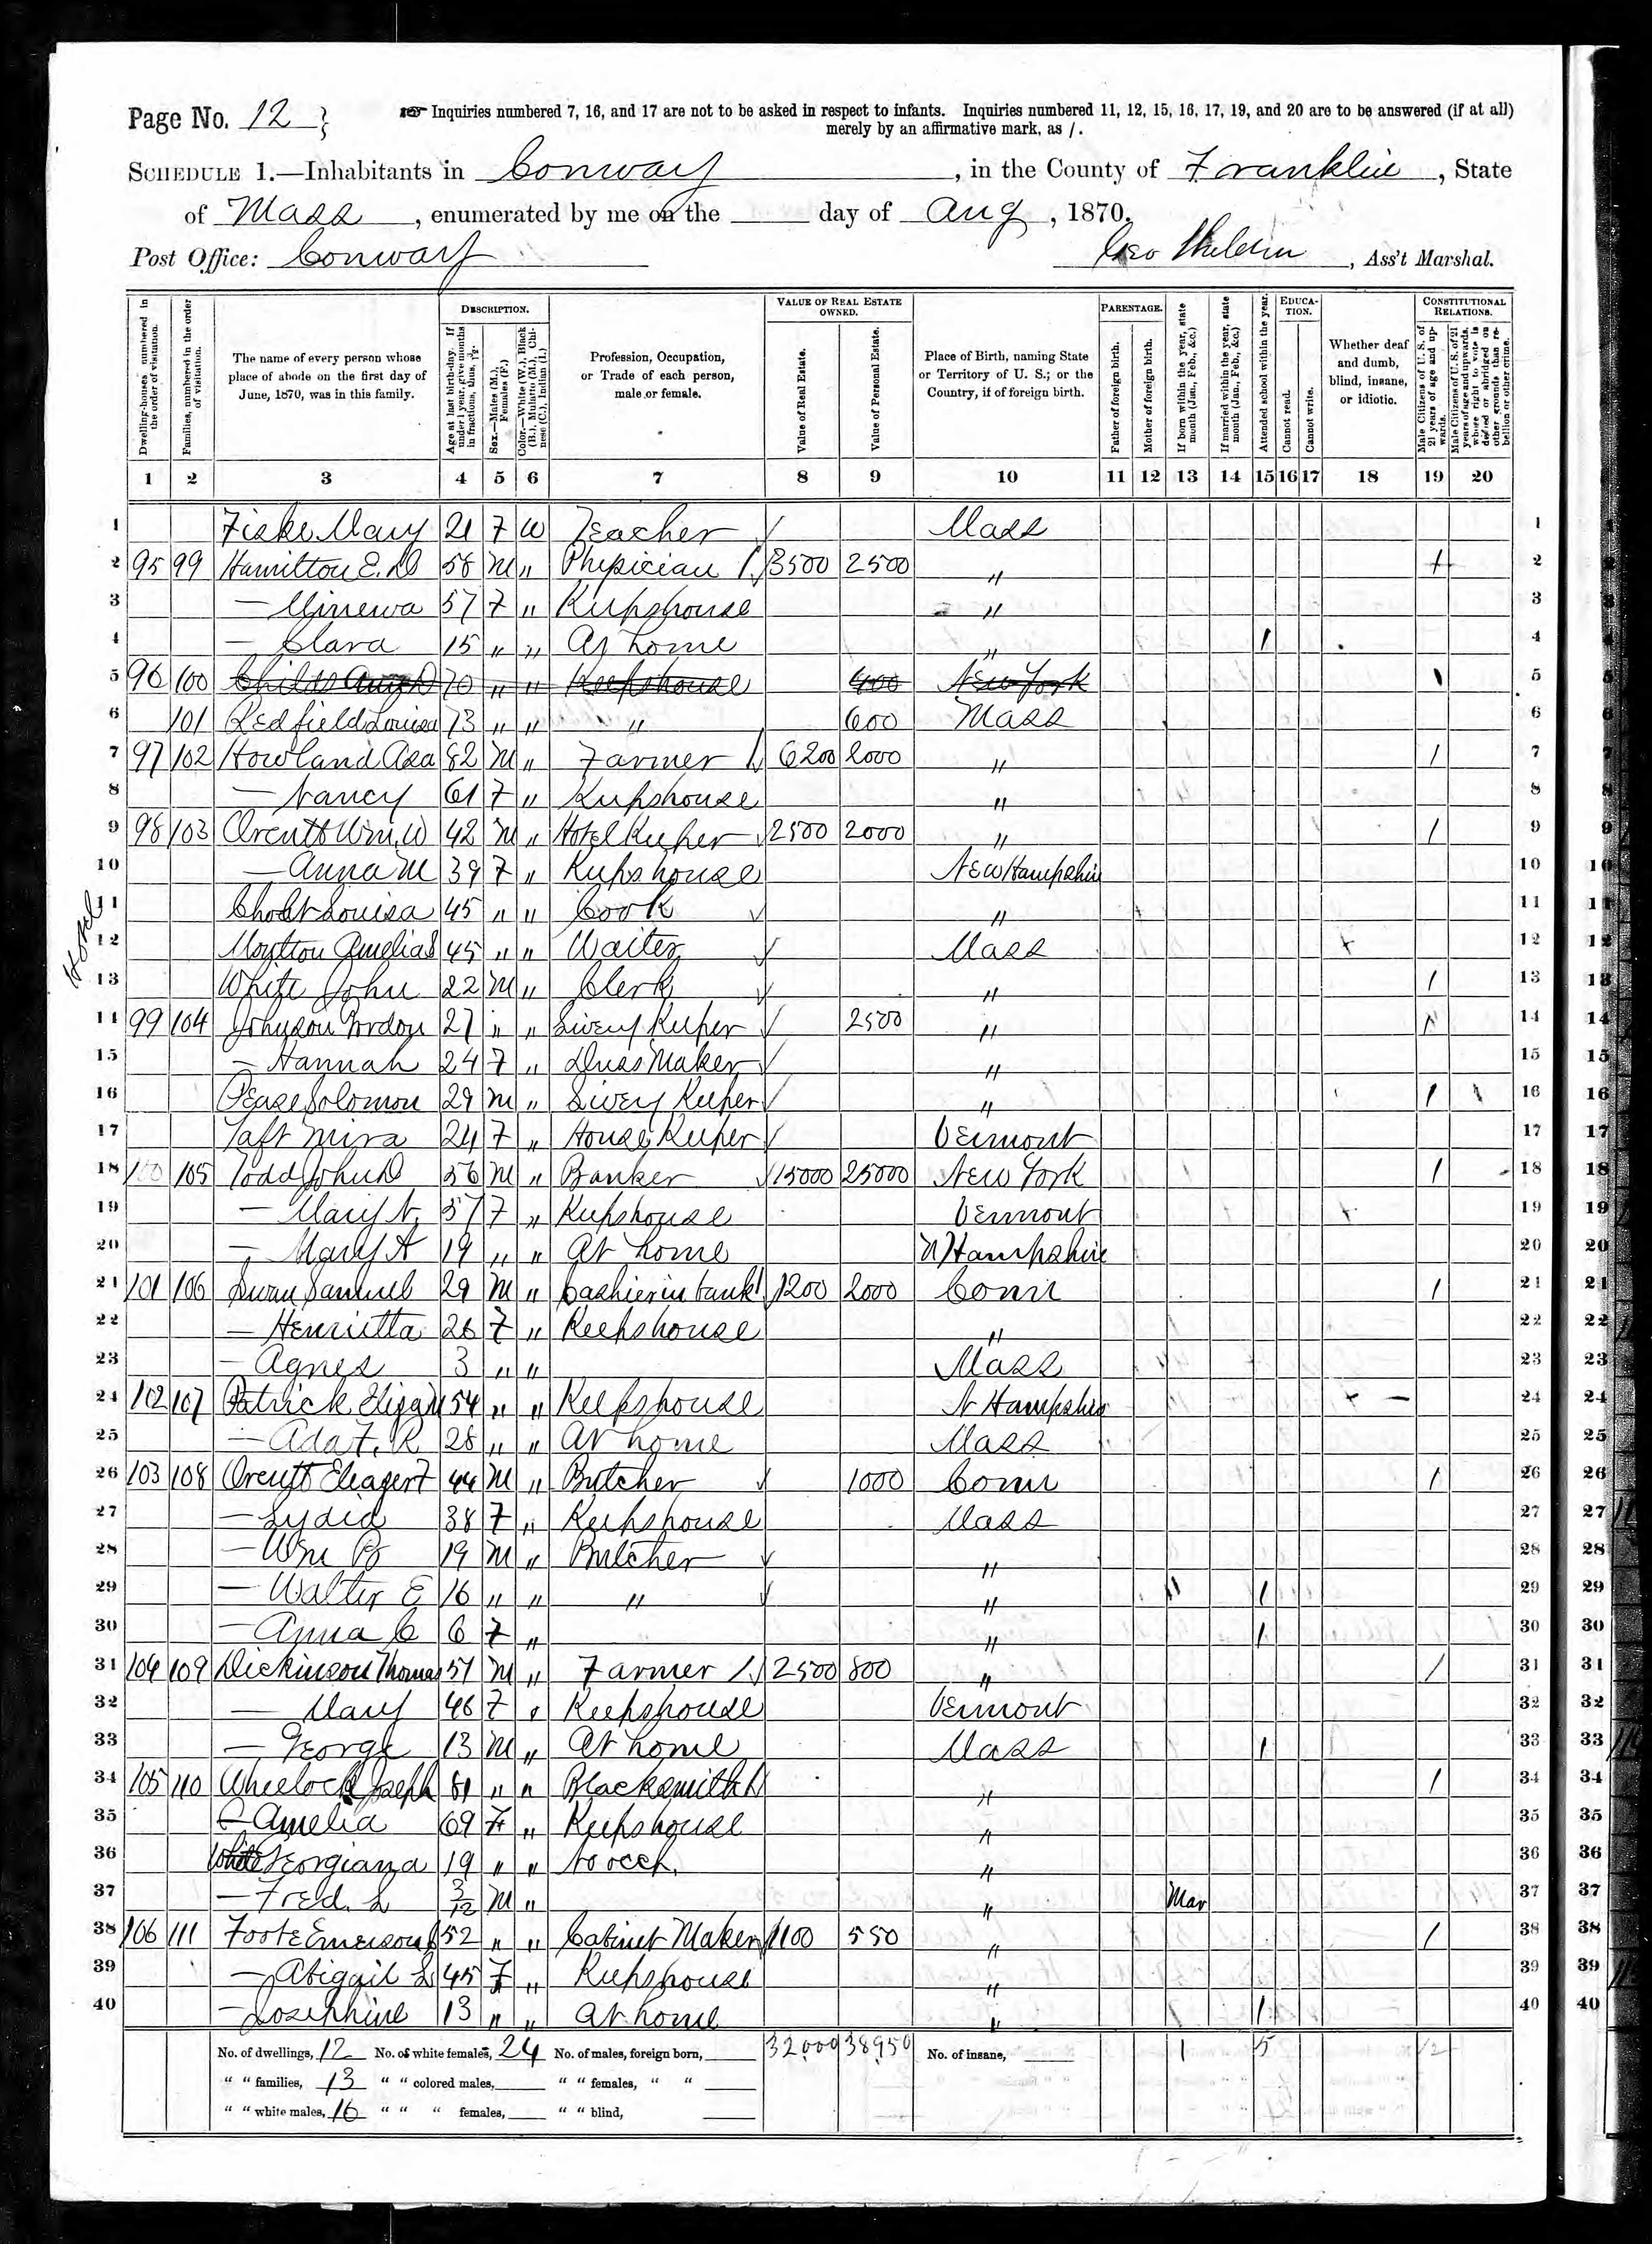 Page No. 12 } ☞ Inquiries numbered 7, 16, and 17 are not to be asked in respect to infants. Inquiries numbered 11, 12, 15, 16, 17, 19, and 20 are to be answered (if at all)
merely by an affirmative mark, as /.
SCHEDULE 1.—Inhabitants in Conway, in the County of Franklin, State
of Mass, enumerated by me on the day of Aug, 1870.
Post Office: Conway Geo Sheldon, Ass't Marshal.
DESCRIPTION. VALUE OF REAL ESTATE OWNED. PARENTAGE. EDUCATION. CONSTITUTIONAL RELATIONS.
Dwelling-houses numbered in the order of visitation.
Families, numbered in the order of visitation.
The name of every person whose place of abode on the first day of June, 1870, was in this family.
Age at last birth-day. If under 1 year, give months in fractions, thus, 3/12.
Sex.—Males (M.), Females (F.)
Color.—White (W.), Black (B.), Mulatto (M.), Chinese (C.), Indian (I.)
Profession, Occupation, or Trade of each person, male or female.
Value of Real Estate.
Value of Personal Estate.
Place of Birth, naming State or Territory of U. S.; or the Country, if of foreign birth.
Father of foreign birth.
Mother of foreign birth.
If born within the year, state month (Jan., Feb., &c.)
If married within the year, state month (Jan., Feb., &c.)
Attended school within the year.
Cannot read.
Cannot write.
Whether deaf and dumb, blind, insane, or idiotic.
Male Citizens of U. S. of 21 years of age and upwards.
Male Citizens of U. S. of 21 years of age and upwards, whose right to vote is denied or abridged on other grounds than rebellion or other crime.
1 2 3 4 5 6 7 8 9 10 11 12 13 14 15 16 17 18 19 20
1 Fiske Mary 21 F W Teacher Mass 1
2 95 99 Hamilton E. D 58 M " Physician 3500 2500 " 2
3 — Minerva 57 F " Keepshouse " 3
4 — Clara 15 " " At home " / 4
5 96 100 Childs 70 " " Keepshouse 400 New York 5
6 101 Redfield Louisa 73 " " " 600 Mass 6
7 97 102 Howland Asa 82 M " Farmer 6200 2000 " / 7
8 — Nancy 61 F " Keepshouse " 8
9 98 103 Orcutt Wm. W 42 M " Hotel Keeper 2500 2000 " / 9
10 — Anna M 39 F " Keepshouse New Hampshire 10
Hotel
11 Louisa 45 " " Cook " 11
12 Moulton Amelia S 45 " " Waiter Mass 12
13 White John 22 M " Clerk " / 13
14 99 104 Johnson Gordon 27 " " Livery Keeper 2500 " / 14
15 — Hannah 24 F " Dress Maker " 15
16 Pease Solomon 29 M " Livery Keeper " / 16
17 Taft Mira 24 F " House Keeper Vermont 17
18 100 105 Todd John D 56 M " Banker 15000 25000 New York / 18
19 — Mary N. 57 F " Keepshouse Vermont 19
20 — Mary A 19 " " At home N Hampshire 20
21 101 106 Swan Samuel 29 M " Cashier in bank 1200 2000 Conn / 21
22 — Henrietta 26 F " Keepshouse " 22
23 — Agnes 3 " " Mass 23
24 102 107 Patrick Eliza 54 " " Keepshouse N Hampshire 24
25 — Ada F. R 28 " " At home Mass 25
26 103 108 Orcutt Eleazer F 44 M " Butcher 1000 Conn / 26
27 — Lydia 38 F " Keepshouse Mass 27
28 — Wm B 19 M " Butcher " 28
29 — Walter E 16 " " " " / 29
30 — Anna C 6 F " " / 30
31 104 109 Dickinson Thomas 51 M " Farmer 2500 800 " / 31
32 — Mary 46 F " Keepshouse Vermont 32
33 — George 13 M " At home Mass / 33
34 105 110 Wheelock Joseph 81 " " Blacksmith " / 34
35 — Amelia 69 F " Keepshouse " 35
36 White Georgiana 19 " " No occp. " 36
37 — Fred. L 3/12 M " " Mar 37
38 106 111 Foote Emerson 52 " " Cabinet Maker 1100 550 " / 38
39 — Abigail L 45 F " Keepshouse " 39
40 — Josephine 13 " " At home " / 40
No. of dwellings, 12 No. of white females, 24 No. of males, foreign born, 32000 38950 No. of insane, 1 5 12
" " families, 13 " " colored males, " " females, " "
" " white males, 16 " " " females, " " blind,